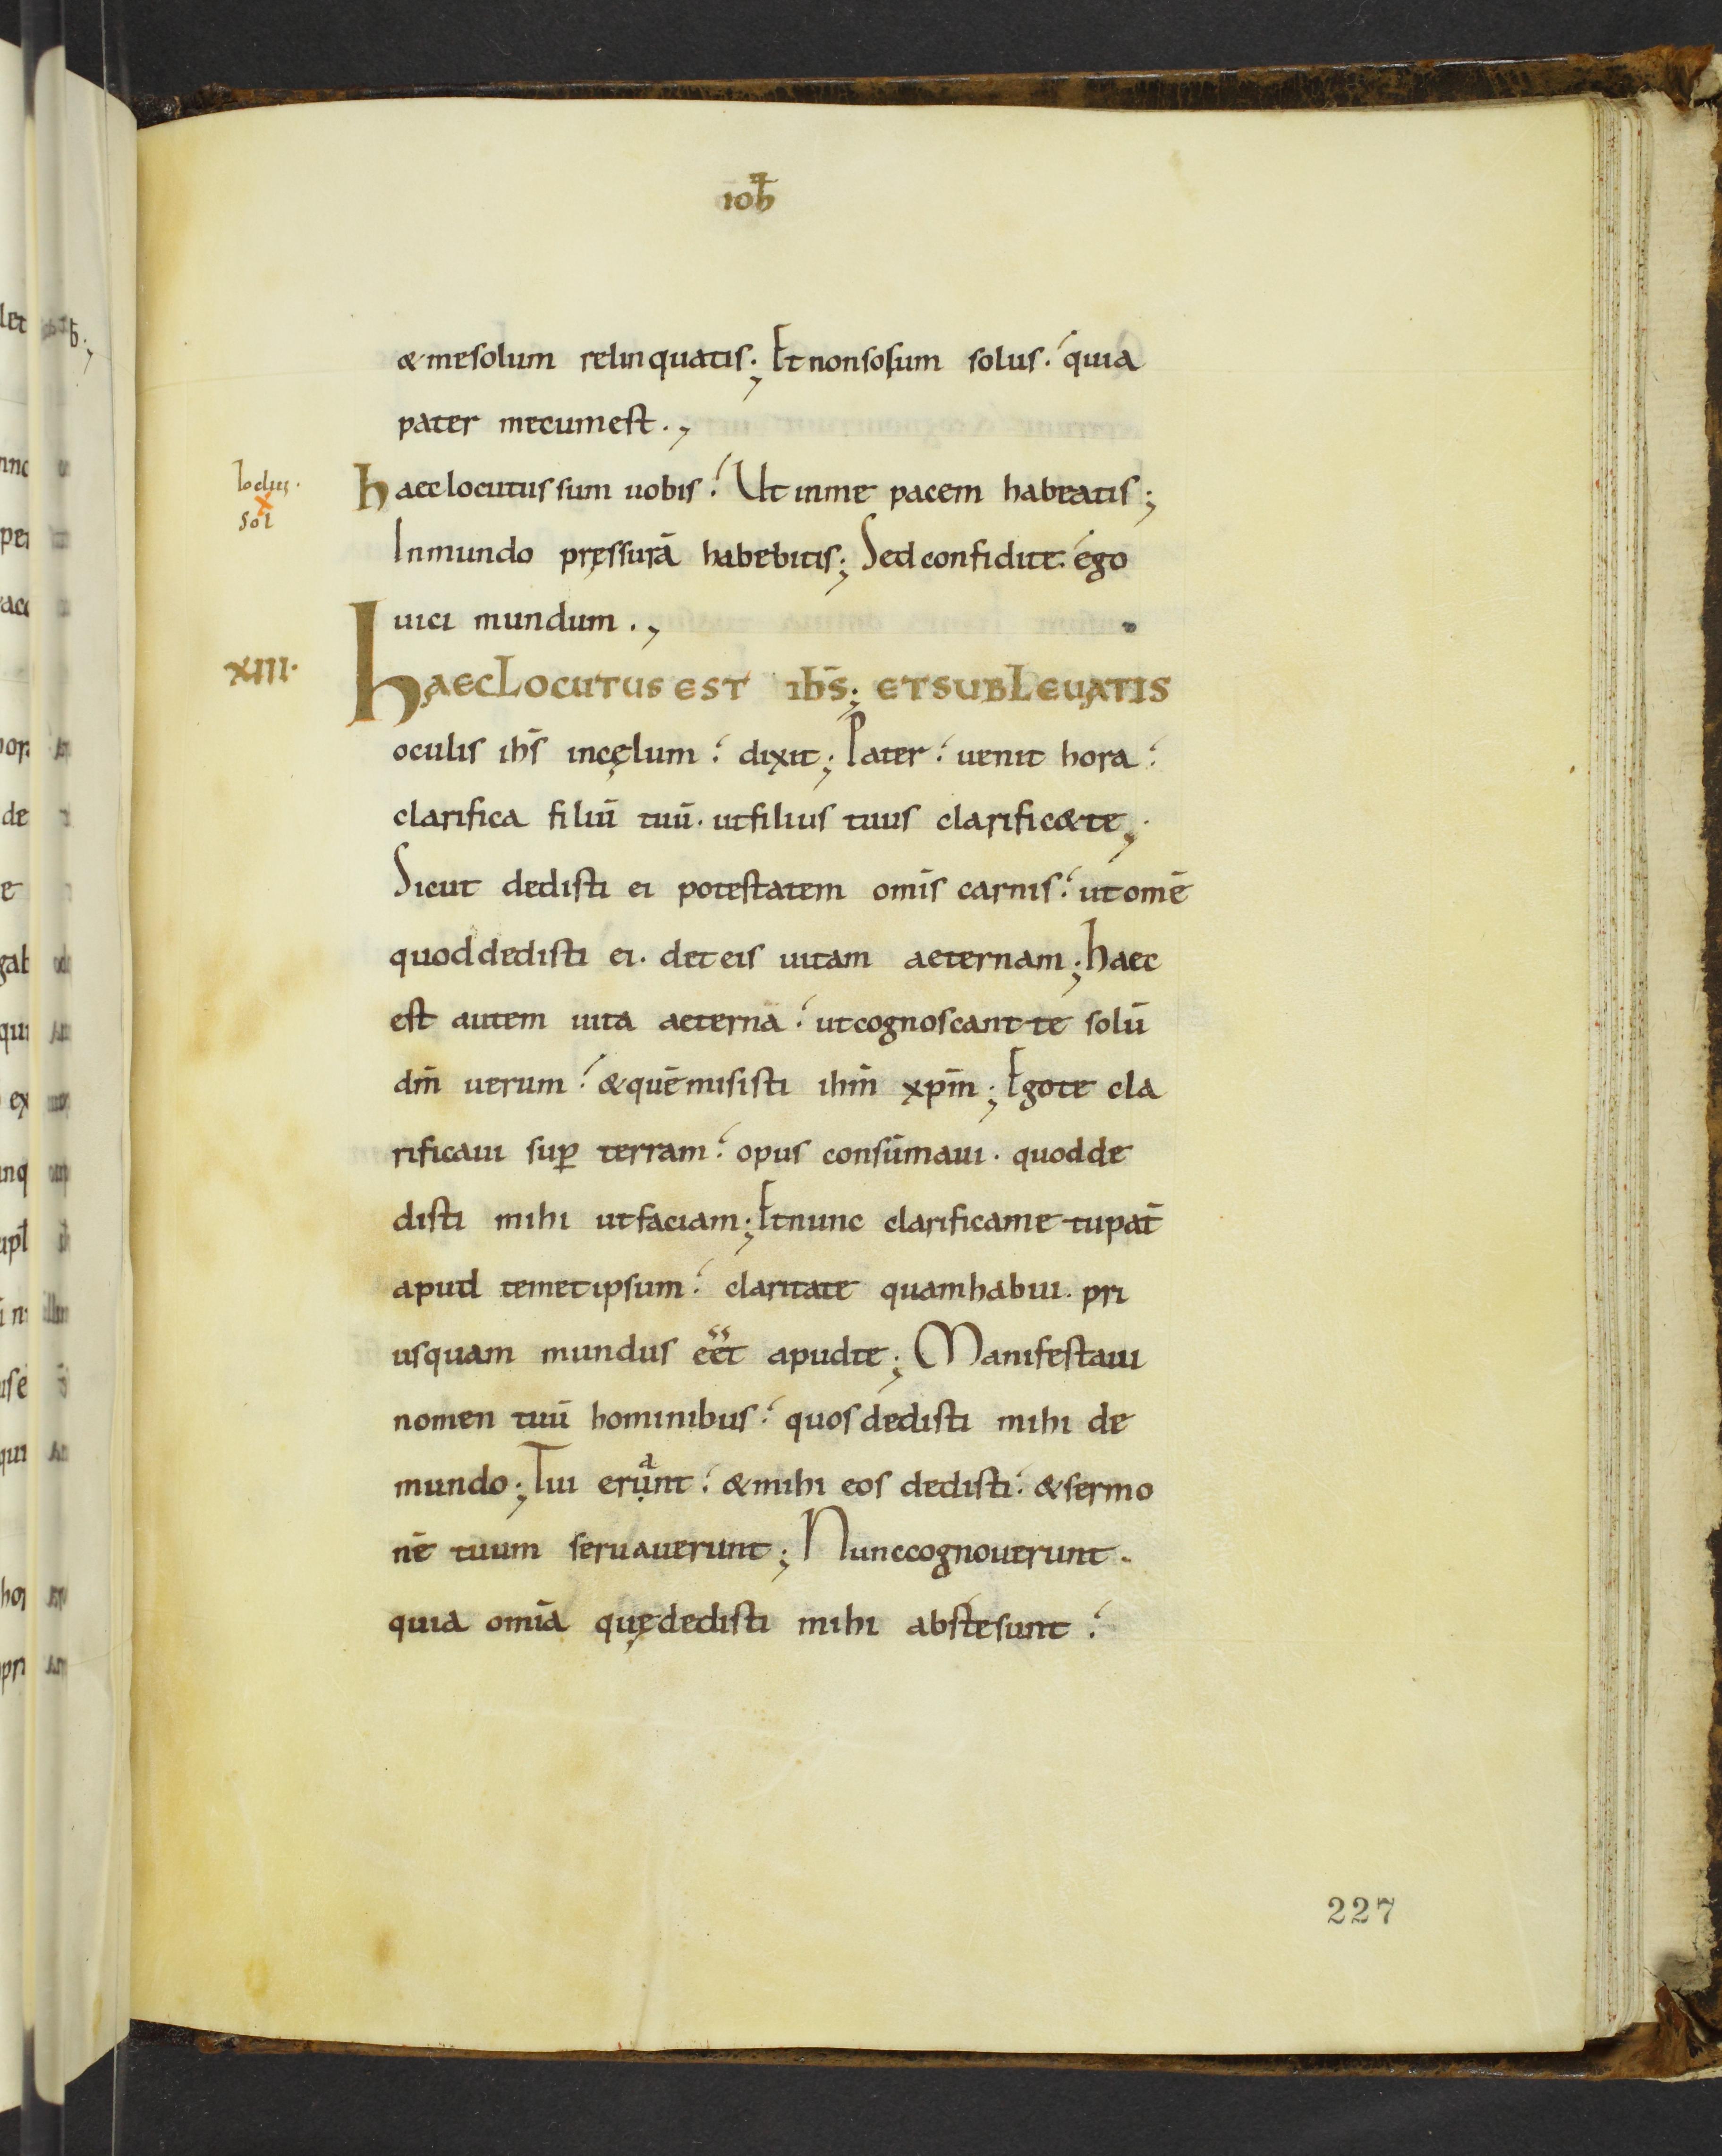 ioħ
&mesolum relinquatis; Et nonsosum solus. quia
pater mecumest.,
Haec locutus sum uobis. Ut inme pacem habeatis;
sol
Inmundo pręssurā habebitis; Sed confidite. ego
uici mundum.,
XIII.
HAECLOCUTUS EST IHS; ET SUBLEUATIS
oculis ihs incęlum. dixit; Pater. uenit hora.
clarifica filiū tuū. utfilius tuus clarific&te;
Sicut dedisti ei potestatem omīs carnis. ut omē
quoddedisti ei. det eis uitam aeternam; haec
est autem uita aeterna. utcognoscant te solū
dm̄ uerum. &quēmisisti ihm̄ xpm̄; Ego te cla
rificaui suꝑ terram. opus consūmaui. quodde
disti mihi utfaciam; Etnunc clarificame tupat̄
apud temetipsum. claritate quamhabui. pri
usquam mundus eēt apudte; Manifestaui
nomen tuū hominibus. quosdedisti mihi de
a
mundo; Tui erụnt. &mihi eos dedisti. &sermo
nē tuum seruauerunt; Nunccognouerunt.
quia omīa quędedisti mihi abstesunt.
227